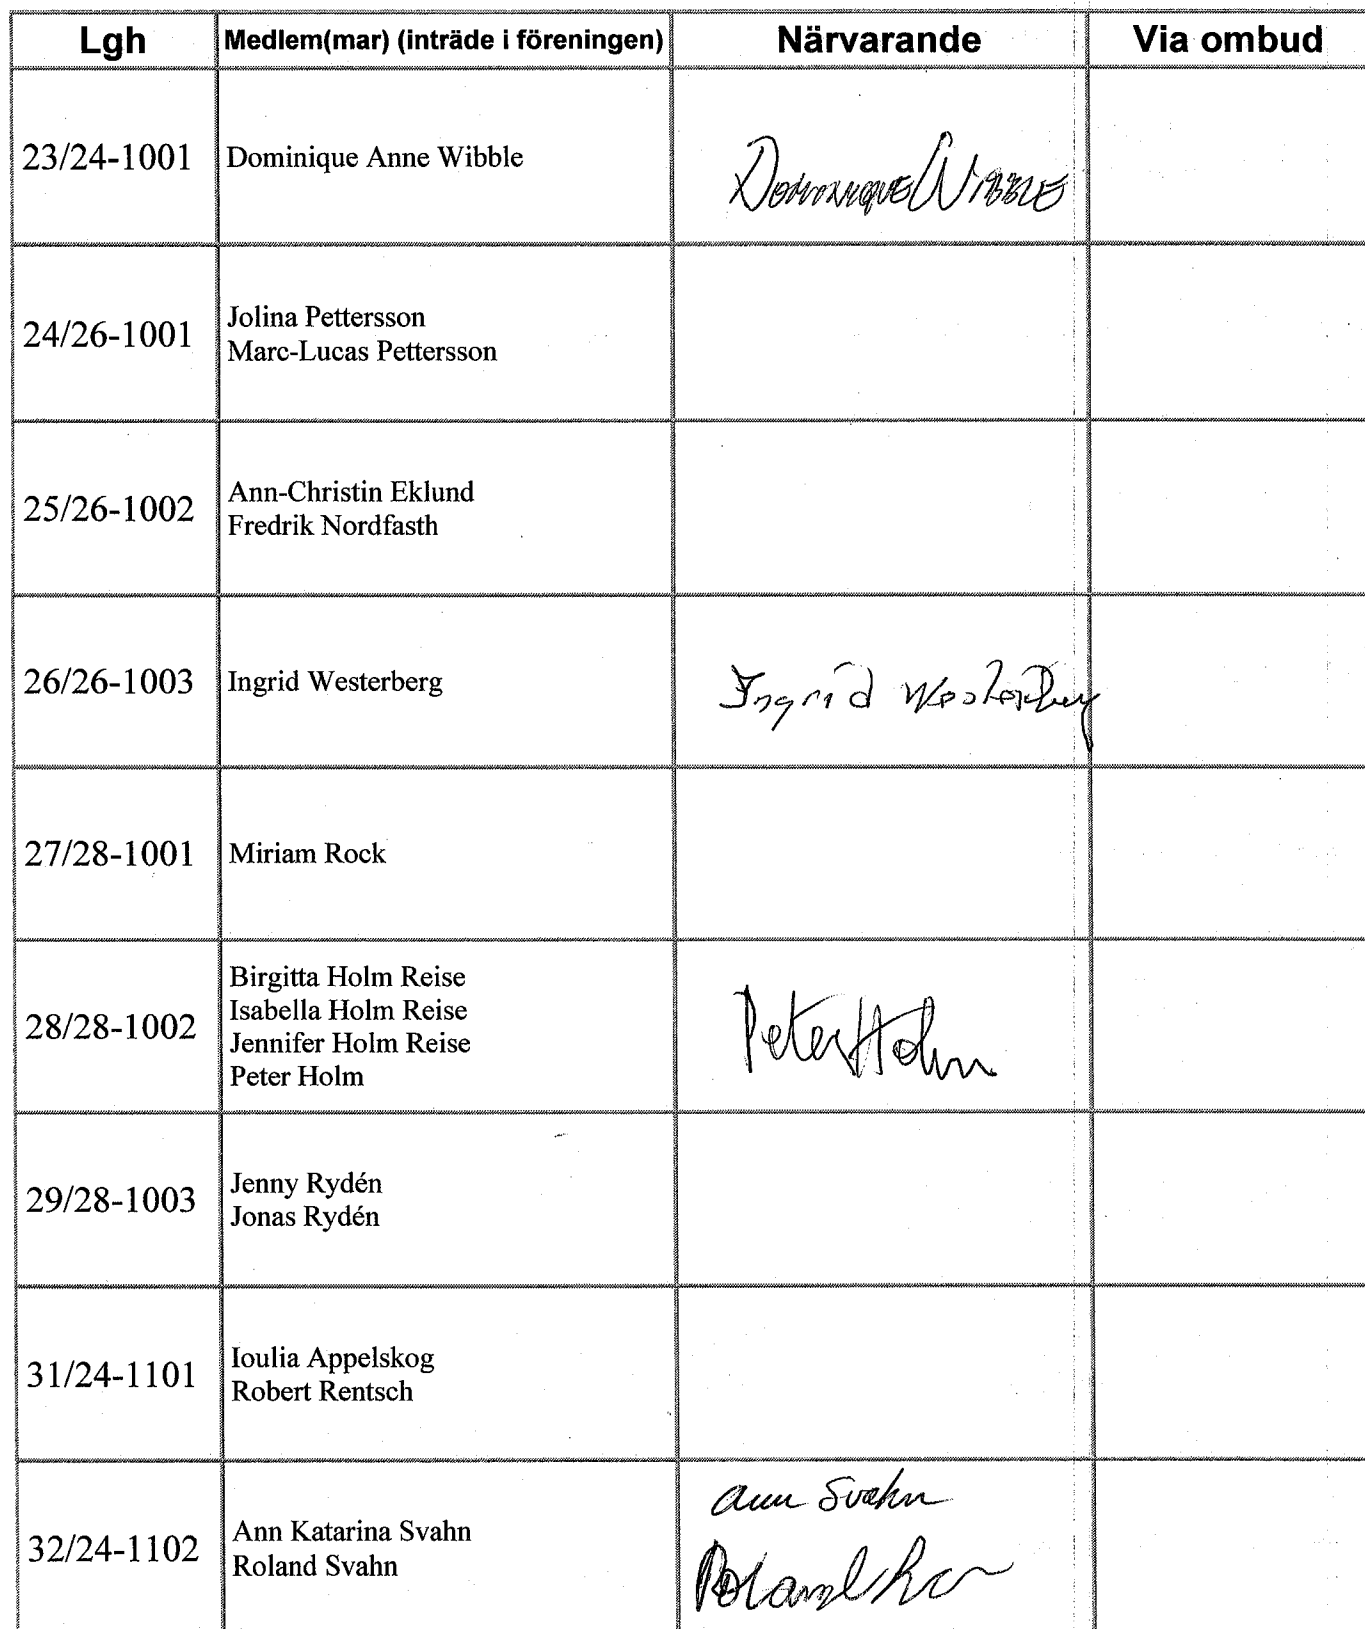 Lgh Medlem(mar) (inträde i föreningen) Närvarande Via ombud
23/24-1001 Dominique Anne Wibble Dominique Wibble
24/26-1001 Jolina Pettersson
Marc-Lucas Pettersson
25/26-1002 Ann-Christin Eklund
Fredrik Nordfasth
26/26-1003 Ingrid Westerberg Ingrid Westerberg
27/28-1001 Miriam Rock
28/28-1002 Birgitta Holm Reise
Isabella Holm Reise
Jennifer Holm Reise
Peter Holm
Peter Holm
29/28-1003 Jenny Rydén
Jonas Rydén
31/24-1101 Ioulia Appelskog
Robert Rentsch
32/24-1102 Ann Katarina Svahn
Roland Svahn
Ann Svahn
Roland